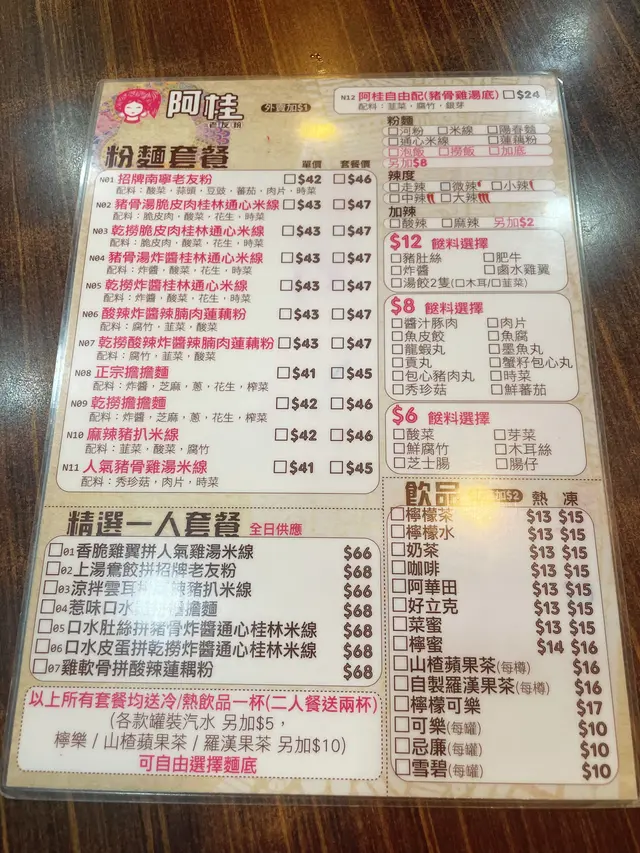 阿桂
老友粉
外賣加$1
粉麵套餐
單價 套餐價
N01 招牌南寧老友粉 $42 $46
配料：酸菜，蒜頭，豆豉，番茄，肉片，時菜
N02 豬骨湯脆皮肉桂林通心米線 $43 $47
配料：脆皮肉，酸菜，花生，時菜
N03 乾撈脆皮肉桂林通心米線 $43 $47
配料：脆皮肉，酸菜，花生，時菜
N04 豬骨湯炸醬桂林通心米線 $43 $47
配料：炸醬，酸菜，花生，時菜
N05 乾撈炸醬桂林通心米線 $43 $47
配料：炸醬，酸菜，花生，時菜
N06 酸辣炸醬辣腩肉蓮藕粉 $43 $47
配料：腐竹，韮菜，酸菜
N07 乾撈酸辣炸醬辣腩肉蓮藕粉 $43 $47
配料：腐竹，韮菜，酸菜
N08 正宗擔擔麵 $41 $45
配料：炸醬，芝麻，蔥，花生，榨菜
N09 乾撈擔擔麵 $42 $46
配料：炸醬，芝麻，蔥，花生，榨菜
N10 麻辣豬扒米線 $42 $46
配料：韮菜，酸菜，腐竹
N11 人氣豬骨雞湯米線 $41 $45
配料：秀珍菇，肉片，時菜
N12 阿桂自由配(豬骨雞湯底) $24
配料：韮菜，腐竹，銀芽
粉麵
河粉 米線 陽春麵
通心米線 蓮藕粉
泡飯 撈飯 加底
另加$8
辣度
走辣 微辣 小辣
中辣 大辣
加辣
酸辣 麻辣 另加$2
$12 餸料選擇
豬肚絲 肥牛
炸醬 鹵水雞翼
湯餃2隻(木耳/韮菜)
$8 餸料選擇
醬汁豚肉 肉片
魚皮餃 魚腐
龍蝦丸 墨魚丸
貢丸 蟹籽包心丸
包心豬肉丸 時菜
秀珍菇 鮮蕃茄
$6 餸料選擇
酸菜 芽菜
鮮腐竹 木耳絲
芝士腸 腸仔
精選一人套餐 全日供應
01 香脆雞翼拼人氣雞湯米線 $66
02 上湯鴛餃拼招牌老友粉 $68
03 涼拌雲耳 辣豬扒米線 $66
04 惹味口水 擔麵 $68
05 口水肚絲拼豬骨炸醬通心桂林米線 $68
06 口水皮蛋拼乾撈炸醬通心桂林米線 $68
07 雞軟骨拼酸辣蓮藕粉 $68
以上所有套餐均送冷/熱飲品一杯(二人餐送兩杯)
(各款罐裝汽水 另加$5，
檸樂 / 山楂蘋果茶 / 羅漢果茶 另加$10)
可自由選擇麵底
飲品 加$2 熱 凍
檸檬茶 $13 $15
檸檬水 $13 $15
奶茶 $13 $15
咖啡 $13 $15
阿華田 $13 $15
好立克 $13 $15
菜蜜 $13 $15
檸蜜 $14 $16
山楂蘋果茶(每樽) $16
自製羅漢果茶(每樽) $16
檸檬可樂 $17
可樂(每罐) $10
忌廉(每罐) $10
雪碧(每罐) $10